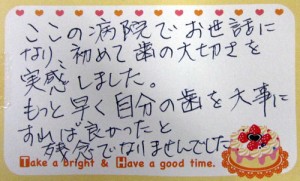 ここの病院でお世話に
なり、初めて歯の大切さを
実感しました。
もっと早く自分の歯を大事に
すれば良かったと
残念でなりませんでした
Take a bright & Have a good time.